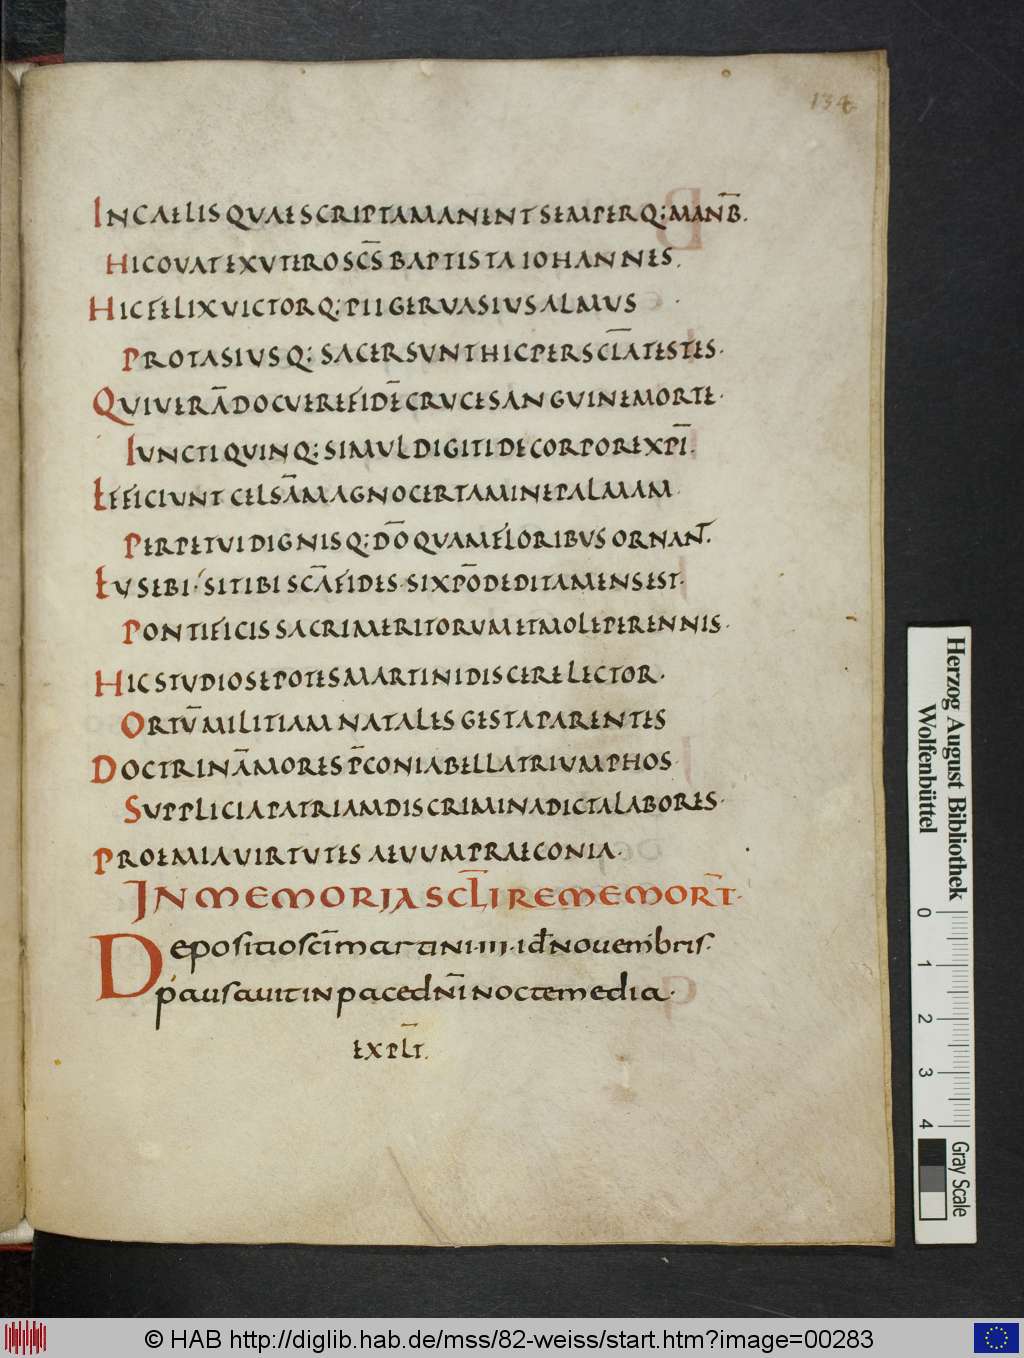 134
INCAELISQUAESCRIPTAMANENTSEMPERQ;MAN̄B.
HICOVATEXUTEROSC̄SBAPTISTAIOHANNES.
HICFELIXVICTORQ;PIIGERVASIUSALMUS
PROTASIUSQ; SACERSUNTHICPERSCL̄ATESTES.
QUIVERĀDOCUEREFIDĒCRUCESANGUINEMORTE.
IUNCTIQUINQ;SIMULDIGITIDECORPOREXPĪ.
EFFICIUNTCELSĀMAGNOCERTAMINEPALMAM
PERPETUIDIGNISQ;DŌQUAMFLORIBUSORNANT̄.
EUSEBI·SITIBISC̄AFIDES·SIXPŌDEDITAMENSEST.
PONTIFICISSACRIMERITORUMETMOLEPERENNIS.
HICSTUDIOSEPOTESMARTINIDISCERELECTOR.
ORTŪMILITIAMNATALESGESTAPARENTES
DOCTRINĀMORESP̄CONIABELLATRIUMPHOS
SUPPLICIAPATRIAMDISCRIMINADICTALABORES.
PROEMIAVIRTUTESAEVUMPRAECONIA.
INMEMORIASCL̄IREMEMORT̄.
Depositioscīmartini·III·id̄novembris.
pausavitinpacedn̄inoctemedia.
EXPLT̄.
Herzog August Bibliothek
Wolfenbüttel
0 1 2 3 4
Gray Scale
© HAB http://diglib.hab.de/mss/82-weiss/start.htm?image=00283